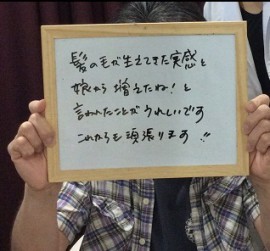 髪の毛が生えてきた実感と
娘から増えたね！と
言われたことがうれしいです
これからも頑張ります!!